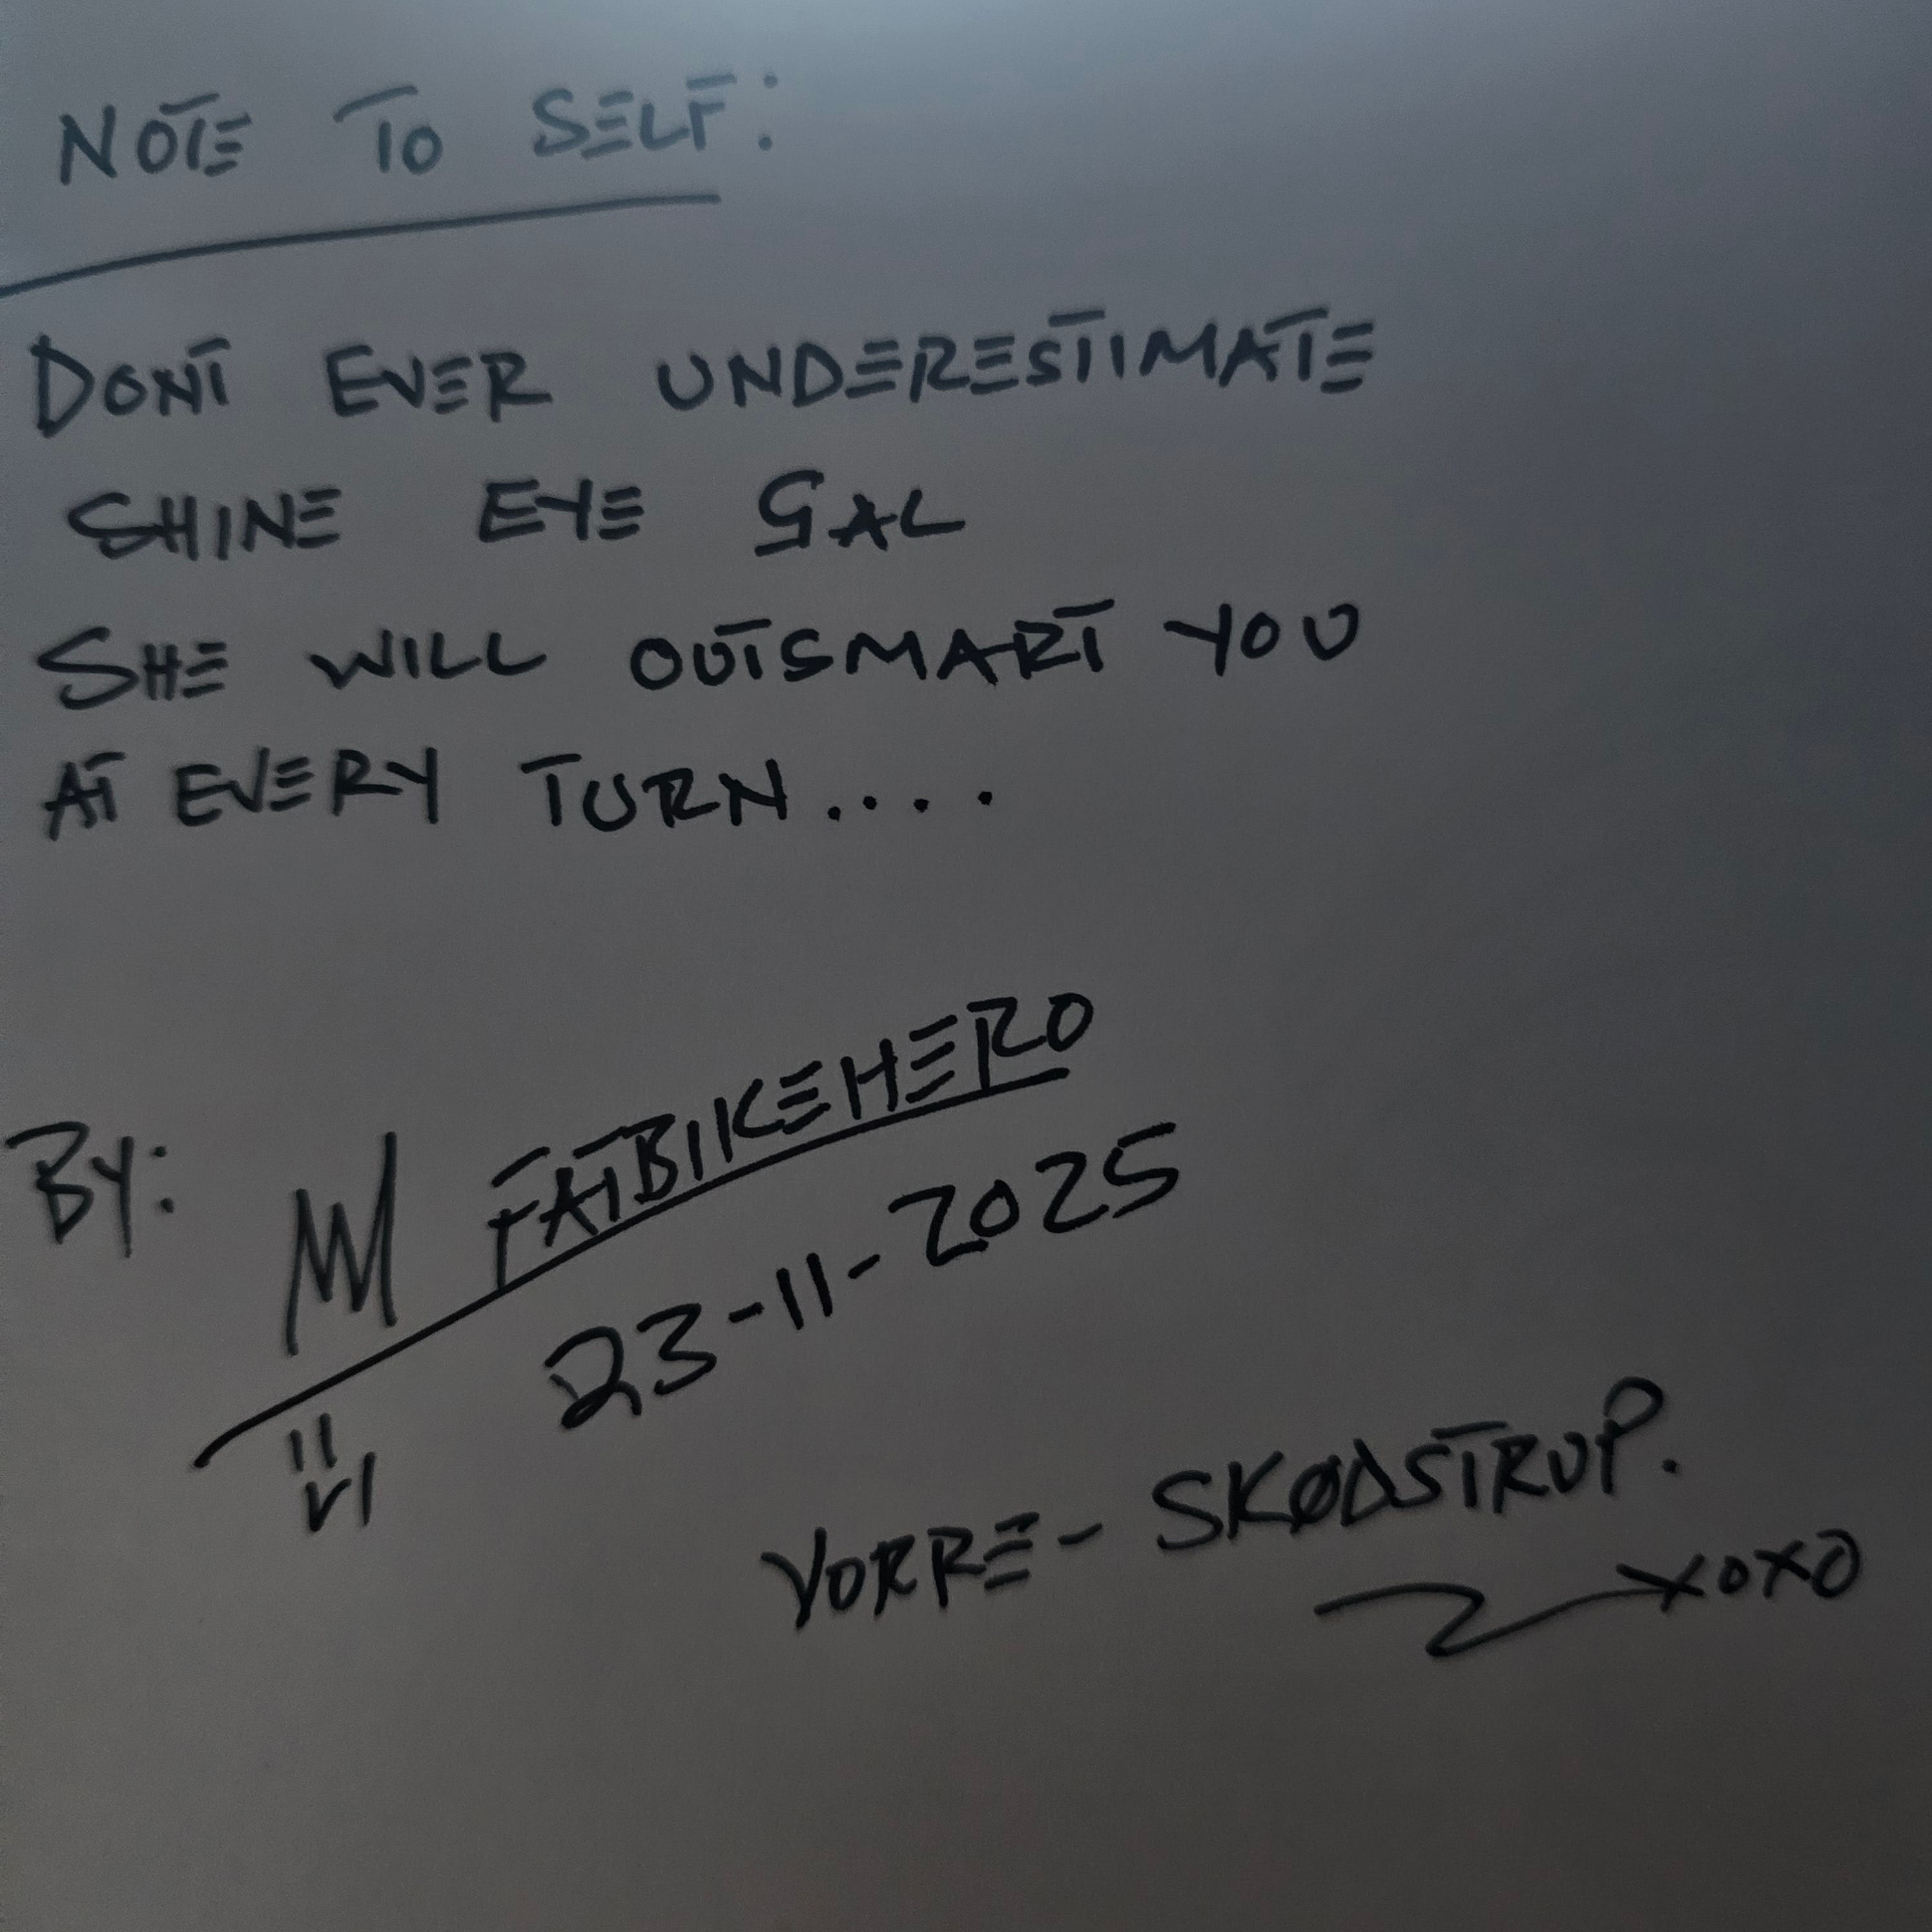 NOTE TO SELF:
DONT EVER UNDERESTIMATE
SHINE EYE GAL
SHE WILL OUTSMART YOU
AT EVERY TURN....
BY: M FATBIKEHERO
23-11-2025
VORRE- SKØDSTRUP.
XOXO